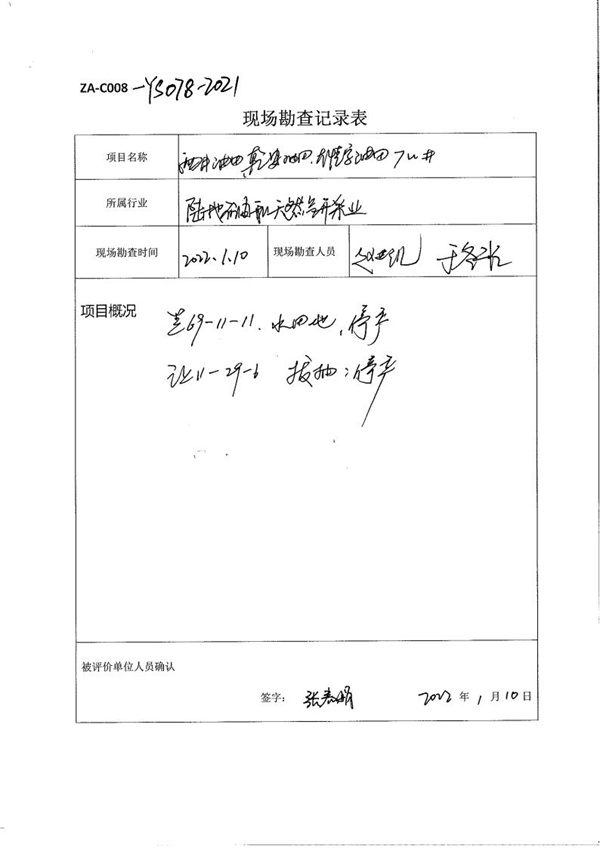 ZA-C008-YS078-2021
现场勘查记录表
项目名称 油田 乾安油田 油田 井
所属行业 陆地石油和天然气开采业
现场勘查时间 2022.1.10 现场勘查人员
项目概况
69-11-11. 水田地, 停产
让11-29-6 拔抽: 停产
被评价单位人员确认
签字: 张 2022 年 1 月 10 日